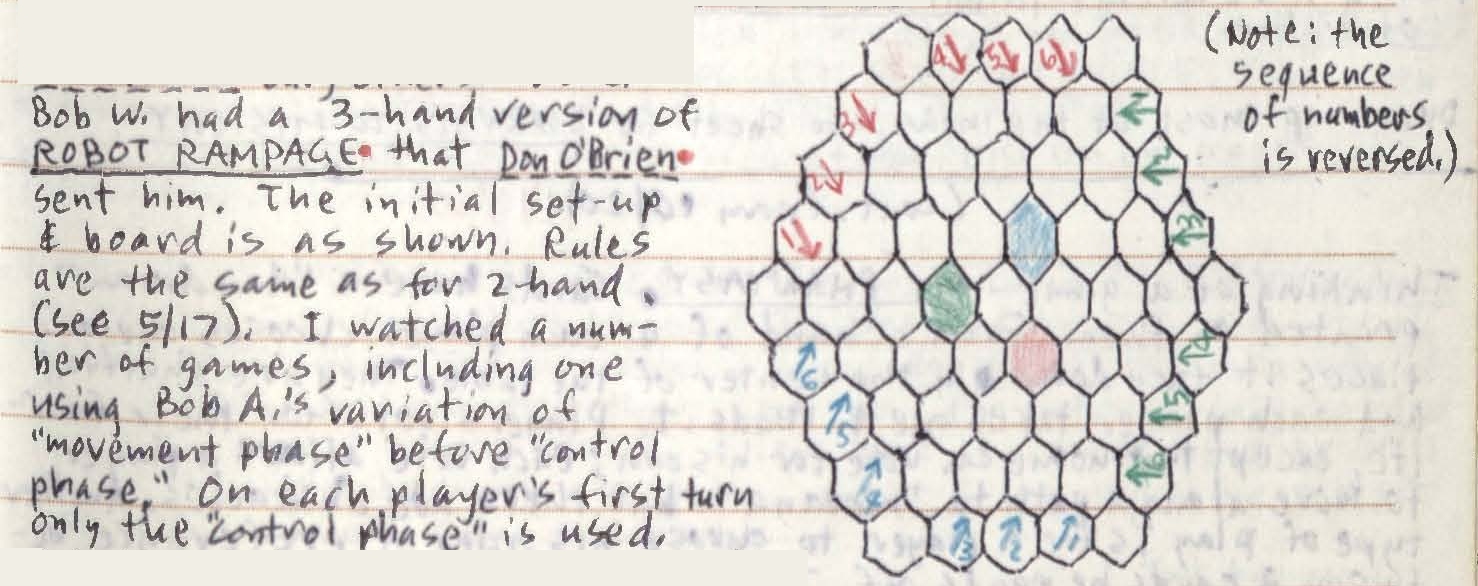 Bob W. had a 3-hand version of
ROBOT RAMPAGE that Don O'Brien
sent him. The initial set-up
& board is as shown. Rules
are the same as for 2 hand.
(see 5/17). I watched a num-
ber of games, including one
using Bob A.'s variation of
"movement phase" before "control
phase." On each player's first turn
only the "control phase" is used.
(Note: the
sequence
of numbers
is reversed.)
4 5 6
3 1
2 2
1 3
6 4
5 5
4 6
3 2 1